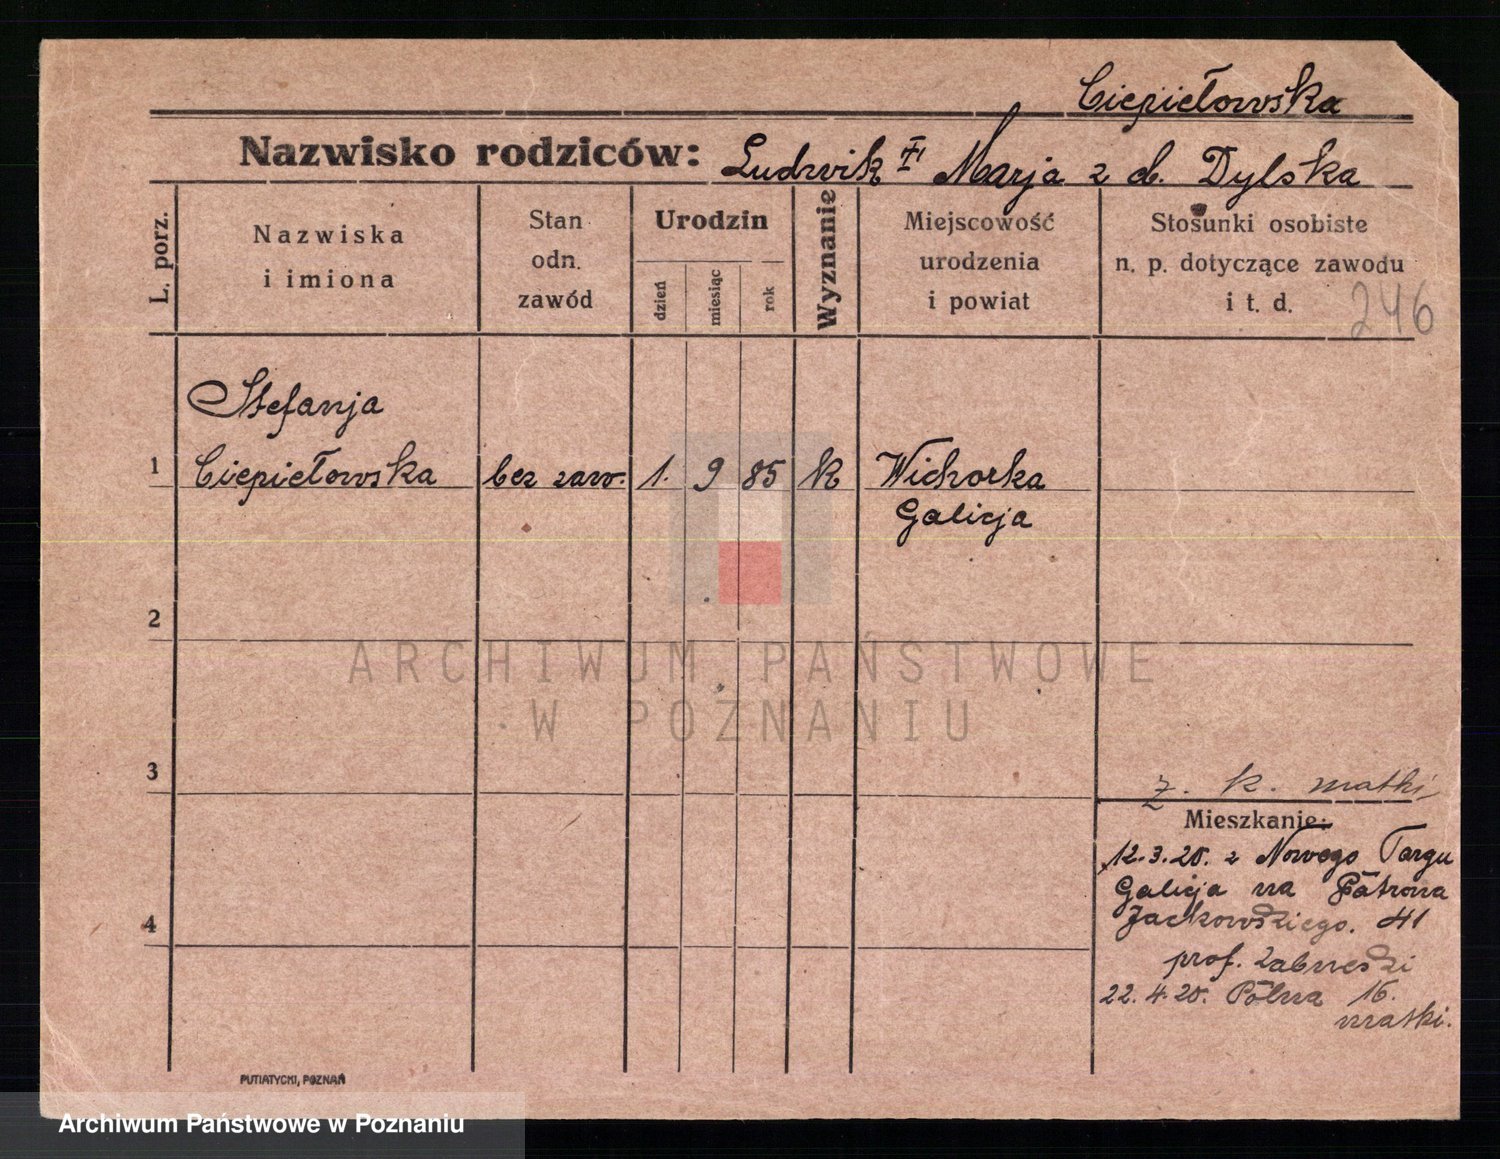 Ciepiełowska
Nazwisko rodziców: Ludwik † Marja z d. Dylska
L. porz.
Nazwiska
i imiona
Stan
odn.
zawód
Urodzin
dzień
miesiąc
rok
Wyznanie
Miejscowość
urodzenia
i powiat
Stosunki osobiste
n. p. dotyczące zawodu
i t. d.
246
Stefanja
1 Ciepiełowska bez zaw. 1. 9 85 k Wichorka
Galicja
2
ARCHIWUM PAŃSTWOWE
W POZNANIU
3
z. k. matki
Mieszkanie:
12.3.20. z Nowego Targu
Galicja na Patrona
Jackowskiego. 41
4
prof.
22.4.20. Polna 16.
matki.
PUTIATYCKI, POZNAŃ
Archiwum Państwowe w Poznaniu